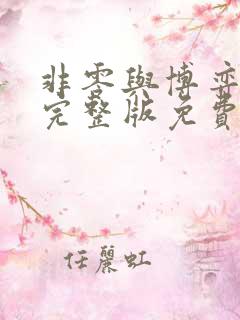 非零與博弈
完整版免費
任麗虹